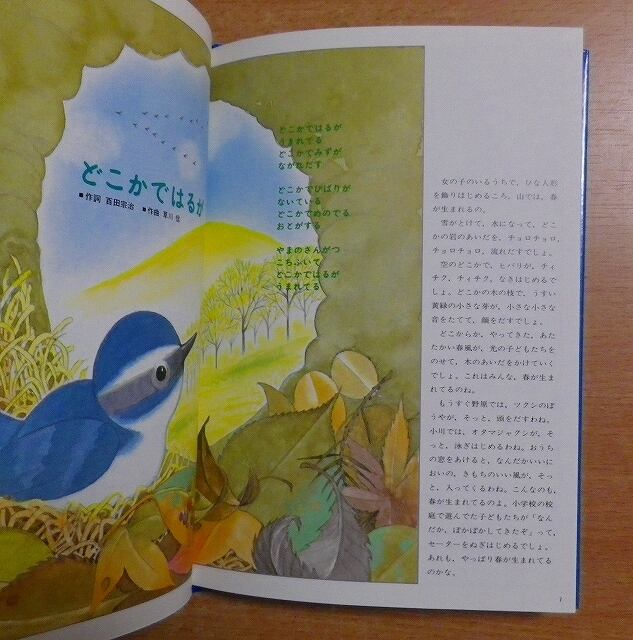 どこかではるが
■作詞 百田宗治 ■作曲 草川 信
どこかではるが
うまれてる
どこかでみずが
ながれだす
どこかでひばりが
ないている
どこかでめのでる
おとがする
やまのさんがつ
こちふいて
どこかではるが
うまれてる
女の子のいるうちで、ひな人形
を飾りはじめるころ。山では、春
が生まれるの。
雪がとけて、水になって、どこ
かの岩のあいだを、チョロチョロ、
チョロチョロ、流れだすでしょ。
空のどこかで、ヒバリが、チィ
チク、チィチク、なきはじめるで
しょ。どこかの木の枝で、うすい
黄緑の小さな芽が、小さな小さな
音をたてて、顔をだすでしょ。
どこからか、やってきた、あた
たかい春風が、光の子どもたちを
のせて、木のあいだをかけていく
でしょ。これはみんな、春が生ま
れてるのね。
もうすぐ野原では、ツクシのぼ
うやが、そっと、頭をだすわね。
小川では、オタマジャクシが、そ
っと、泳ぎはじめるわね。おうち
の窓をあけると、なんだかいいに
おいの、きもちのいい風が、そっ
と、入ってくるわね。こんなのも、
春が生まれてるのよ。小学校の校
庭で遊んでた子どもたちが「なん
だか、ぽかぽかしてきたぞ」って、
セーターをぬぎはじめるでしょ。
あれも、やっぱり春が生まれてる
のかな。
1